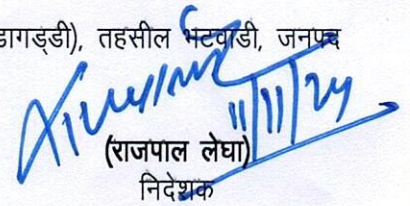 डागड्डी), तहसील भटवाडी, जनपद
11/11/24
(राजपाल लेघा)
निदेशक